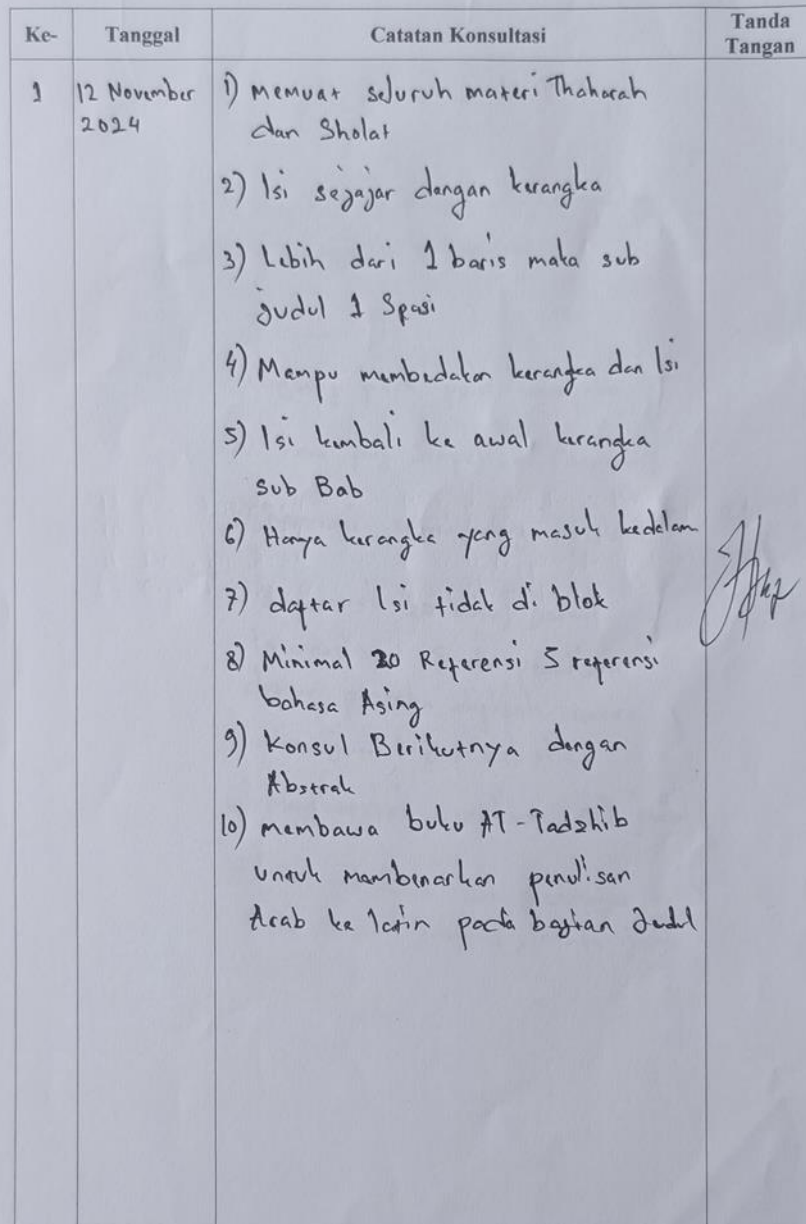 Ke- Tanggal Catatan Konsultasi Tanda Tangan
1 12 November 2024
1) Memuat seluruh materi Thaharah
dan Sholat
2) Isi sejajar dengan kerangka
3) Lebih dari 1 baris maka sub
judul 1 Spasi
4) Mampu membedakan kerangka dan Isi
5) Isi kembali ke awal kerangka
sub Bab
6) Hanya kerangka yang masuk kedalam
7) daftar Isi tidak di blok
8) Minimal 20 Referensi 5 referensi
bahasa Asing
9) Konsul Berikutnya dengan
Abstrak
10) membawa buku AT-Tadzhib
untuk membenarkan penulisan
Arab ke latin pada bagian Judul